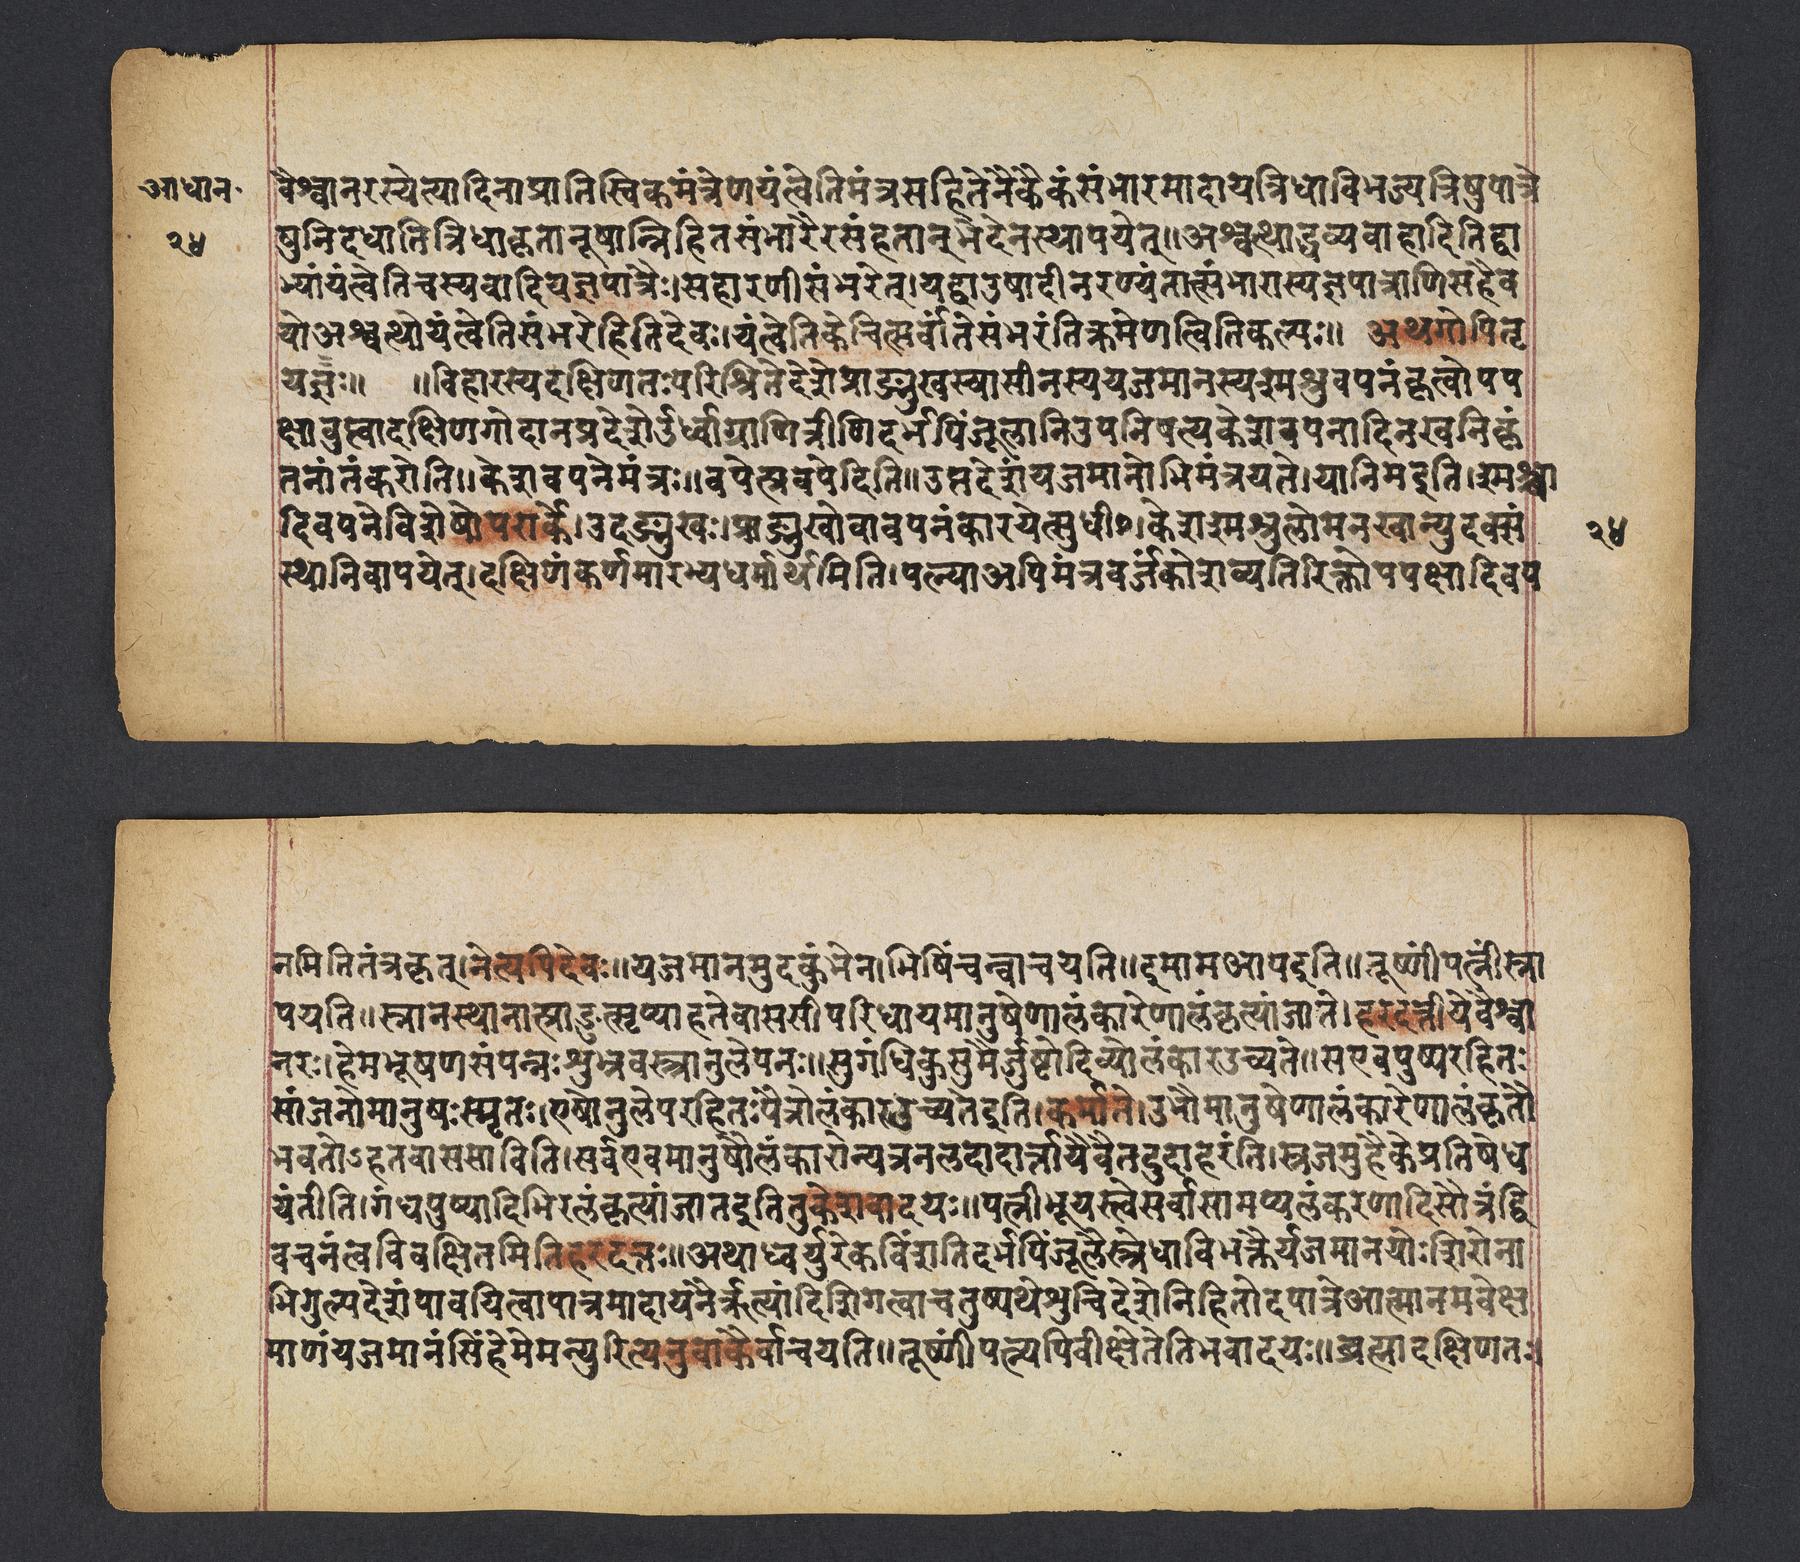 आधान॰
२४
वैश्वानरस्येत्यादिनाप्रातिस्विकमंत्रेणयंत्वेतिमंत्रसहितेनैकैकंसंभारमादायत्रिधाविभज्यत्रिषुपात्रे
षुनिदधातित्रिधाकृतानूषान्निहितसंभारैरसंहतान्भेदेनस्थापयेत्॥अश्वत्थाद्धव्यवाहादितिद्वा
भ्यांयंत्वेतिचस्यवादियज्ञपात्रैः।सहारणीसंभरेत्।यद्वाउषादीनरण्यंतात्संभारास्यज्ञपात्राणिसहैव
योअश्वत्थोयंत्वेतिसंभरेद्दितिदेवः।यंत्वेतिकेचित्सर्वांतेसंभरंतिक्रमेणत्वितिकल्पः॥ अथगोपितृ
यज्ञः॥ ॥विहारस्यदक्षिणतःपरिश्रितेदेशेप्राङ्मुखस्यासीनस्ययजमानस्यश्मश्रुवपनंकृत्वोपप
क्षावुप्त्वादक्षिणगोदानप्रदेशेर्उर्ध्वाग्राणित्रीणिदर्भपिंजूलानिउपनिषत्यकेशवपनादिनखनिकृं
तनांतंकरोति॥केशवपनेमंत्रः॥वपेत्प्रवपेदिति॥उप्तदेशंयजमानोभिमंत्रयते।यानिमइति।श्मश्र्वा
दिवपनेविशेषोपरार्के।उदङ्मुखः।प्राङ्मुखोवावपनंकारयेत्सुधीः।केशश्मश्रुलोमनखान्युदक्सं
२४
स्थानिवापयेत्।दक्षिणंकर्णमारभ्यधर्मार्थमिति।पत्न्याअपिमंत्रवर्जंकेशव्यतिरिक्तोपपक्षादिवप
नमितितंत्रकृत्।नेत्यपिदेवः॥यजमानमुदकुंभेनाभिषिंचन्वाचयति॥इमामआपइति॥तूष्णींपत्नींस्ना
पयति॥स्नानस्थानात्प्राङुत्सृप्याहतेवाससीपरिधायमानुषेणालंकारेणालंकृत्यांजाते।हरदत्तीयेवैश्वा
नरः।हेमभूषणसंपन्नःशुभ्रवस्त्रानुलेपनः॥सुगंधिकुसुमैर्जुष्टोदिव्योलंकारउच्यते॥सएवपुष्परहितः
सांजनोमानुषःस्मृतः।एषोनुलेपरहितःपैत्रोलंकारउच्यतेइति।कर्मांते।उभौमानुषेणालंकारेणालंकृतौ
भवतोऽहतवाससाविति।सर्वएवमानुषोलंकारोन्यत्रनलदादार्त्तायैवैतदुदाहरंति।स्त्रजमुहैकेप्रतिषेध
यंतीति।गंधपुष्पादिभिरलंकृत्यांजातइतितुकेशवादयः॥पत्नीभूयस्त्वेसर्वासामप्यलंकरणादिसौत्रंद्वि
वचनंत्वविवक्षितमितिहरदत्तः॥अथाध्वर्युरेकविंशतिदर्भपिंजूलैस्त्रेधाविभक्तैर्यजमानयोःशिरोना
भिगुल्फदेशंपावयित्वापात्रमादायनैर्ऋत्यांदिशिगत्वाचतुष्पथेशुचिदेशेनिहितोदपात्रेआत्मानमवेक्ष
माणंयजमानंसिंहेमेमन्युरित्यनुवाकैर्वाचयति॥तूष्णींपत्न्यपिवीक्षेतेतिभवादयः॥ब्रह्मादक्षिणतः।